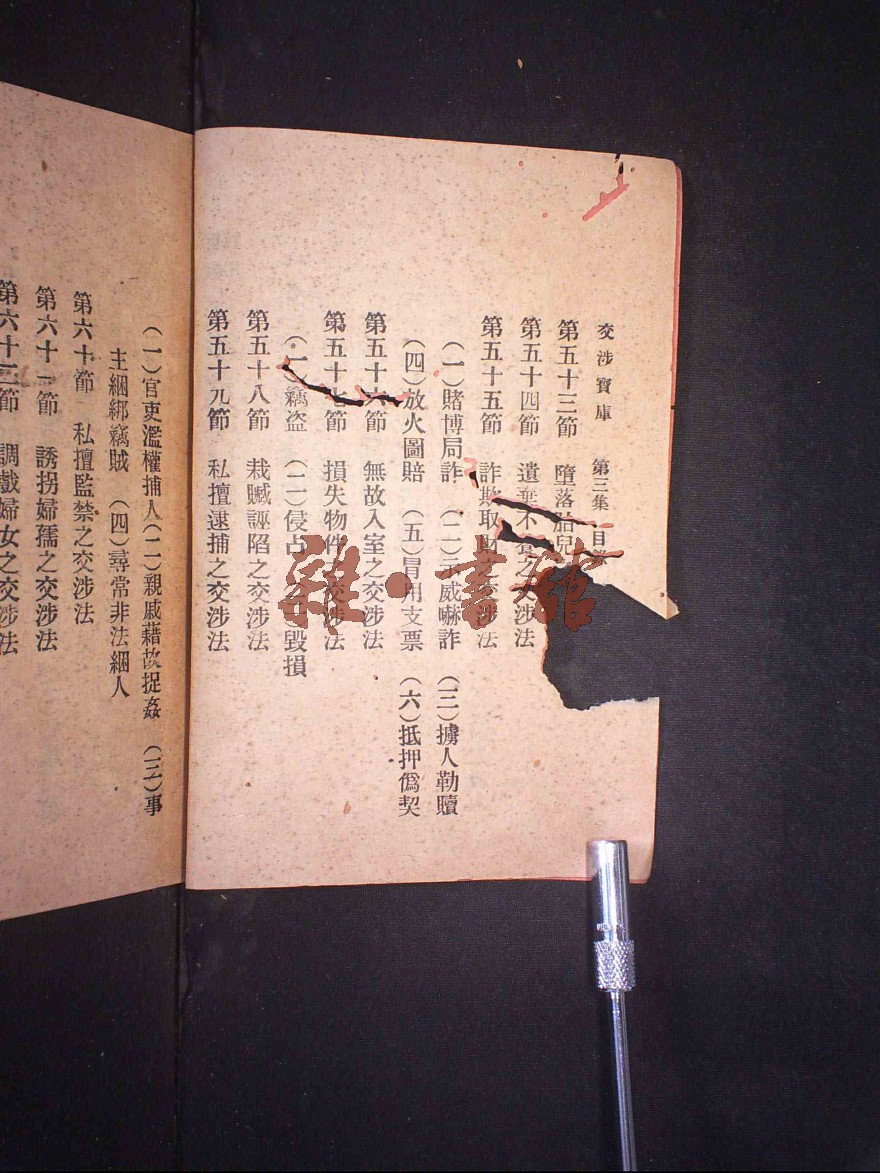 交涉寶庫 第三集 目
第五十三節 墮落胎兒
第五十四節 遺棄不養之交涉法
第五十五節 詐欺取財之交涉法
(一)賭博局詐 (二)示威嚇詐 (三)擄人勒贖
(四)放火圖賠 (五)冒用支票 (六)抵押僞契
第五十六節 無故入室之交涉法
第五十七節 損失物件之交涉法
(一)竊盗 (二)侵占 毀損
第五十八節 栽贓誣陷之交涉法
第五十九節 私擅逮捕之交涉法
(一)官吏濫權捕人(二)親戚藉故捉姦 (三)事
主綑綁竊賊 (四)尋常非法綑人
第六十節 私擅監禁之交涉法
第六十一節 誘拐婦孺之交涉法
第六十二節 調戲婦女之交涉法
雜·書館